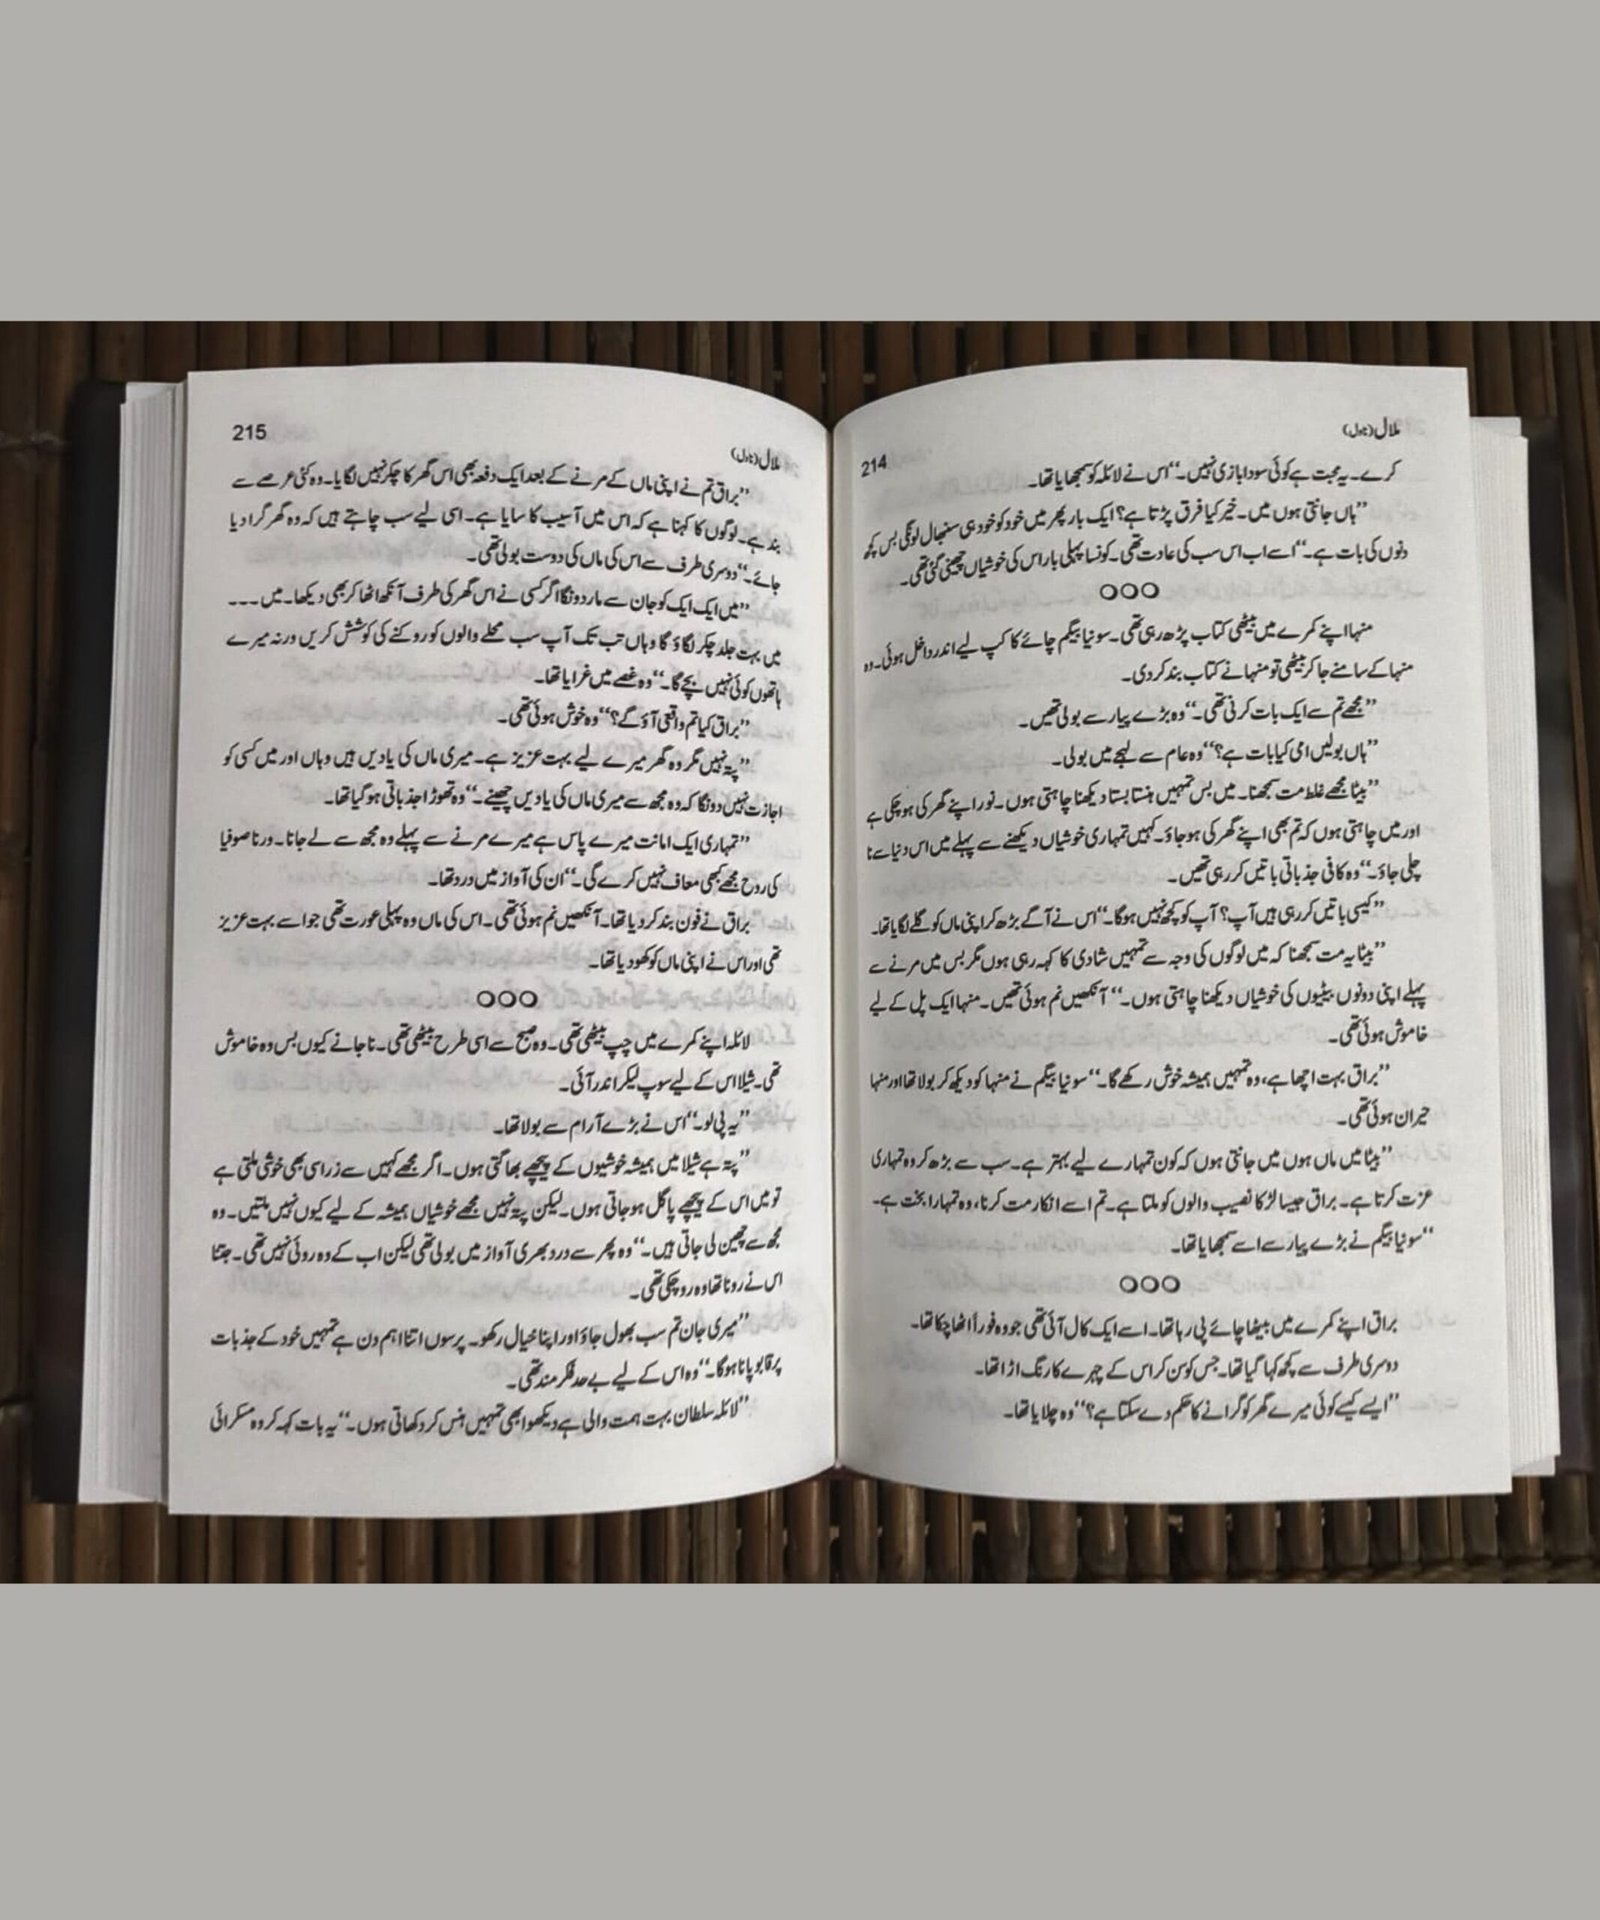 ملال (ناول)
214
کرے۔ یہ محبت ہے کوئی سودا بازی نہیں۔‘‘ اس نے لائلہ کو سمجھایا تھا۔
’’ہاں جانتی ہوں میں۔ خیر کیا فرق پڑتا ہے؟ ایک بار پھر میں خود کو خود ہی سنبھال لونگی بس کچھ
دنوں کی بات ہے۔‘‘ اسے اب اس سب کی عادت تھی۔ کونسا پہلی بار اس کی خوشیاں چھینی گئی تھی۔
○○○
منہا اپنے کمرے میں بیٹھی کتاب پڑھ رہی تھی۔ سونیا بیگم چائے کا کپ لیے اندر داخل ہوئی۔ وہ
منہا کے سامنے جا کر بیٹھی تو منہا نے کتاب بند کر دی۔
’’مجھے تم سے ایک بات کرنی تھی۔‘‘ وہ بڑے پیار سے بولی تھیں۔
’’ہاں بولیں امی کیا بات ہے؟‘‘ وہ عام سے لہجے میں بولی۔
’’بیٹا مجھے غلط مت سمجھنا۔ میں بس تمہیں ہنستا بستا دیکھنا چاہتی ہوں۔ نور اپنے گھر کی ہو چکی ہے
اور میں چاہتی ہوں کہ تم بھی اپنے گھر کی ہو جاؤ۔ کہیں تمہاری خوشیاں دیکھنے سے پہلے میں اس دنیا سے نا
چلی جاؤ۔‘‘ وہ کافی جذباتی باتیں کر رہی تھیں۔
’’کیسی باتیں کر رہی ہیں آپ؟ آپ کو کچھ نہیں ہوگا۔‘‘ اس نے آگے بڑھ کر اپنی ماں کو گلے لگایا تھا۔
’’بیٹا یہ مت سمجھنا کہ میں لوگوں کی وجہ سے تمہیں شادی کا کہہ رہی ہوں مگر بس میں مرنے سے
پہلے اپنی دونوں بیٹیوں کی خوشیاں دیکھنا چاہتی ہوں۔‘‘ آنکھیں نم ہوئی تھیں۔ منہا ایک پل کے لیے
خاموش ہوئی تھی۔
’’براق بہت اچھا ہے، وہ تمہیں ہمیشہ خوش رکھے گا۔‘‘ سونیا بیگم نے منہا کو دیکھ کر بولا تھا اور منہا
حیران ہوئی تھی۔
’’بیٹا میں ماں ہوں میں جانتی ہوں کہ کون تمہارے لیے بہتر ہے۔ سب سے بڑھ کر وہ تمہاری
عزت کرتا ہے۔ براق جیسا لڑکا نصیب والوں کو ملتا ہے۔ تم اسے انکار مت کرنا، وہ تمہارا بخت ہے۔
‘‘سونیا بیگم نے بڑے پیار سے اسے سمجھایا تھا۔
○○○
براق اپنے کمرے میں بیٹھا چائے پی رہا تھا۔ اسے ایک کال آئی تھی جو وہ فوراً اٹھا چکا تھا۔
دوسری طرف سے کچھ کہا گیا تھا۔ جس کو سن کر اس کے چہرے کا رنگ اڑا تھا۔
’’ایسے کیسے کوئی میرے گھر کو گرانے کا حکم دے سکتا ہے؟‘‘ وہ چلایا تھا۔
ملال (ناول)
215
’’براق تم نے اپنی ماں کے مرنے کے بعد ایک دفعہ بھی اس گھر کا چکر نہیں لگایا۔ وہ کئی عرصے سے
بند ہے۔ لوگوں کا کہنا ہے کہ اس میں آسیب کا سایا ہے۔ اسی لیے سب چاہتے ہیں کہ وہ گھر گرا دیا
جائے۔‘‘ دوسری طرف سے اس کی ماں کی دوست بولی تھی۔
’’میں ایک ایک کو جان سے مار دونگا اگر کسی نے اس گھر کی طرف آنکھ اٹھا کر بھی دیکھا۔ میں ۔۔۔۔
میں بہت جلد چکر لگاؤ گا وہاں تب تک آپ سب محلے والوں کو روکنے کی کوشش کریں ورنہ میرے
ہاتھوں کوئی نہیں بچے گا۔‘‘ وہ غصے میں غرایا تھا۔
’’براق کیا تم واقعی آؤ گے؟‘‘ وہ خوش ہوئی تھی۔
’’پتہ نہیں مگر وہ گھر میرے لیے بہت عزیز ہے۔ میری ماں کی یادیں ہیں وہاں اور میں کسی کو
اجازت نہیں دونگا کہ وہ مجھ سے میری ماں کی یادیں چھینے۔‘‘ وہ تھوڑا جذباتی ہو گیا تھا۔
’’تمہاری ایک امانت میرے پاس ہے میرے مرنے سے پہلے وہ مجھ سے لے جانا۔ ورنا صوفیا
کی روح مجھے کبھی معاف نہیں کرے گی۔‘‘ ان کی آواز میں درد تھا۔
براق نے فون بند کر دیا تھا۔ آنکھیں نم ہوئی تھی۔ اس کی ماں وہ پہلی عورت تھی جو اسے بہت عزیز
تھی اور اس نے اپنی ماں کو کھو دیا تھا۔
○○○
لائلہ اپنے کمرے میں چپ بیٹھی تھی۔ وہ صبح سے اسی طرح بیٹھی تھی۔ نا جانے کیوں بس وہ خاموش
تھی۔ شیلا اس کے لیے سوپ لیکر اندر آئی۔
’’یہ پی لو۔‘‘ اس نے بڑے آرام سے بولا تھا۔
’’پتہ ہے شیلا میں ہمیشہ خوشیوں کے پیچھے بھاگتی ہوں۔ اگر مجھے کہیں سے زرا سی بھی خوشی ملتی ہے
تو میں اس کے پیچھے پاگل ہو جاتی ہوں۔ لیکن پتہ نہیں مجھے خوشیاں ہمیشہ کے لیے کیوں نہیں ملتیں۔ وہ
مجھ سے چھین لی جاتی ہیں۔‘‘ وہ پھر سے درد بھری آواز میں بولی تھی لیکن اب کے وہ روئی نہیں تھی۔ جتنا
اس نے رونا تھا وہ رو چکی تھی۔
’’میری جان تم سب بھول جاؤ اور اپنا خیال رکھو۔ پرسوں اتنا اہم دن ہے تمہیں خود کے جذبات
پر قابو پانا ہوگا۔‘‘ وہ اس کے لیے بے حد فکر مند تھی۔
’’لائلہ سلطان بہت ہمت والی ہے دیکھو ابھی تمہیں ہنس کر دکھاتی ہوں۔‘‘ یہ بات کہہ کر وہ مسکرائی